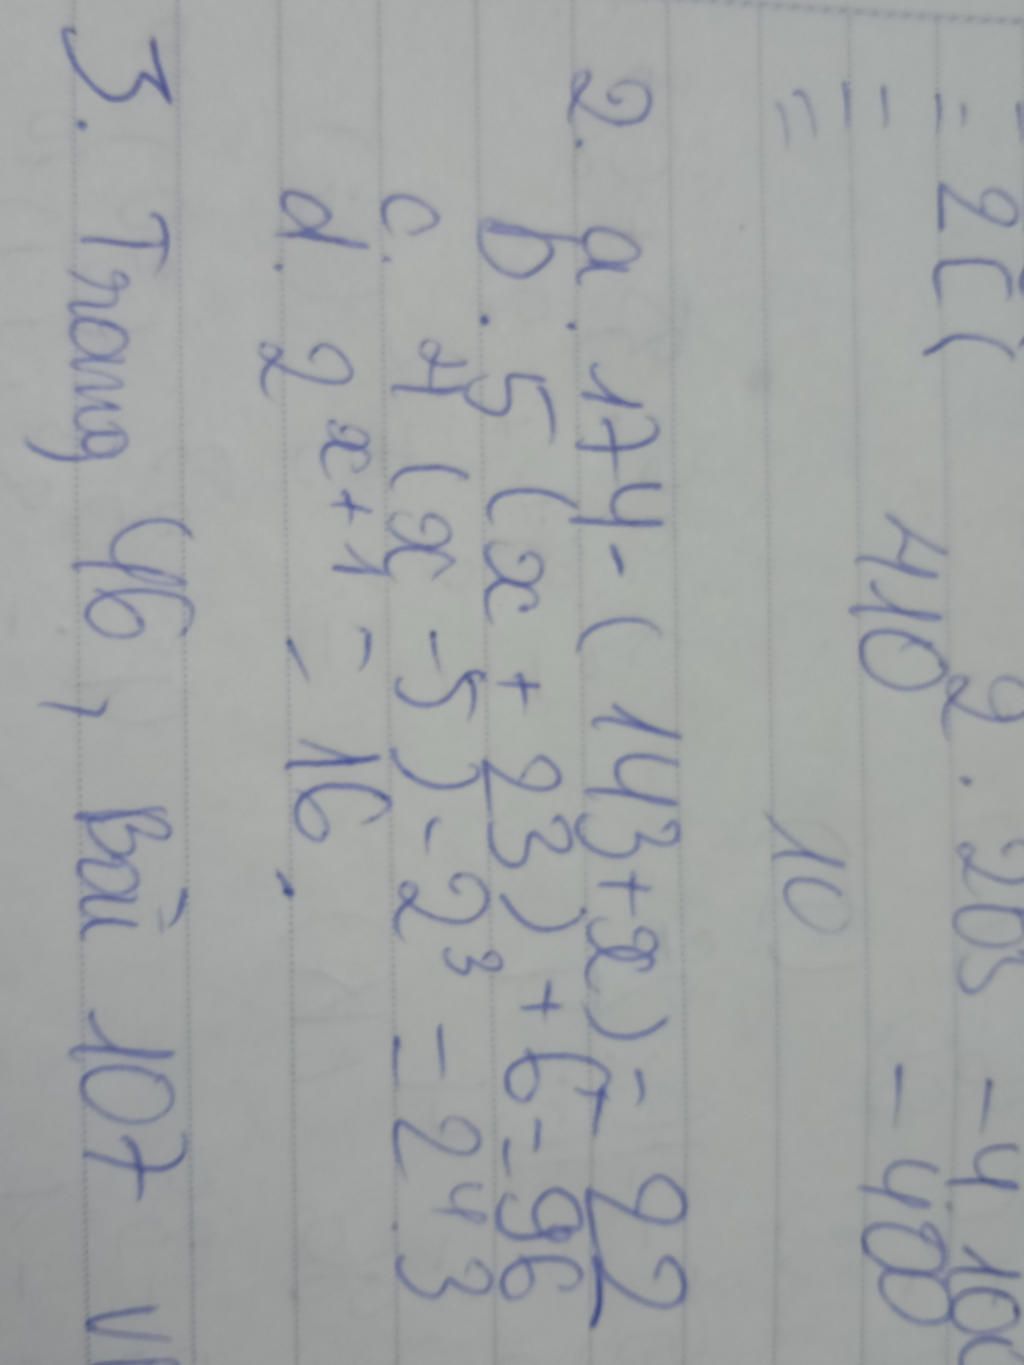 = 2[( 2 . 205 - 4 100
= 410 - 408
= 10
2. a. 174 - ( 143 + x) = 22
b. 5 (x + 23) + 6 = 96
c. 4 (x - 5) - 2³ = 2⁴ . 3
d. 2ˣ⁺¹ = 16 .
3. Trang 46, Bài 107